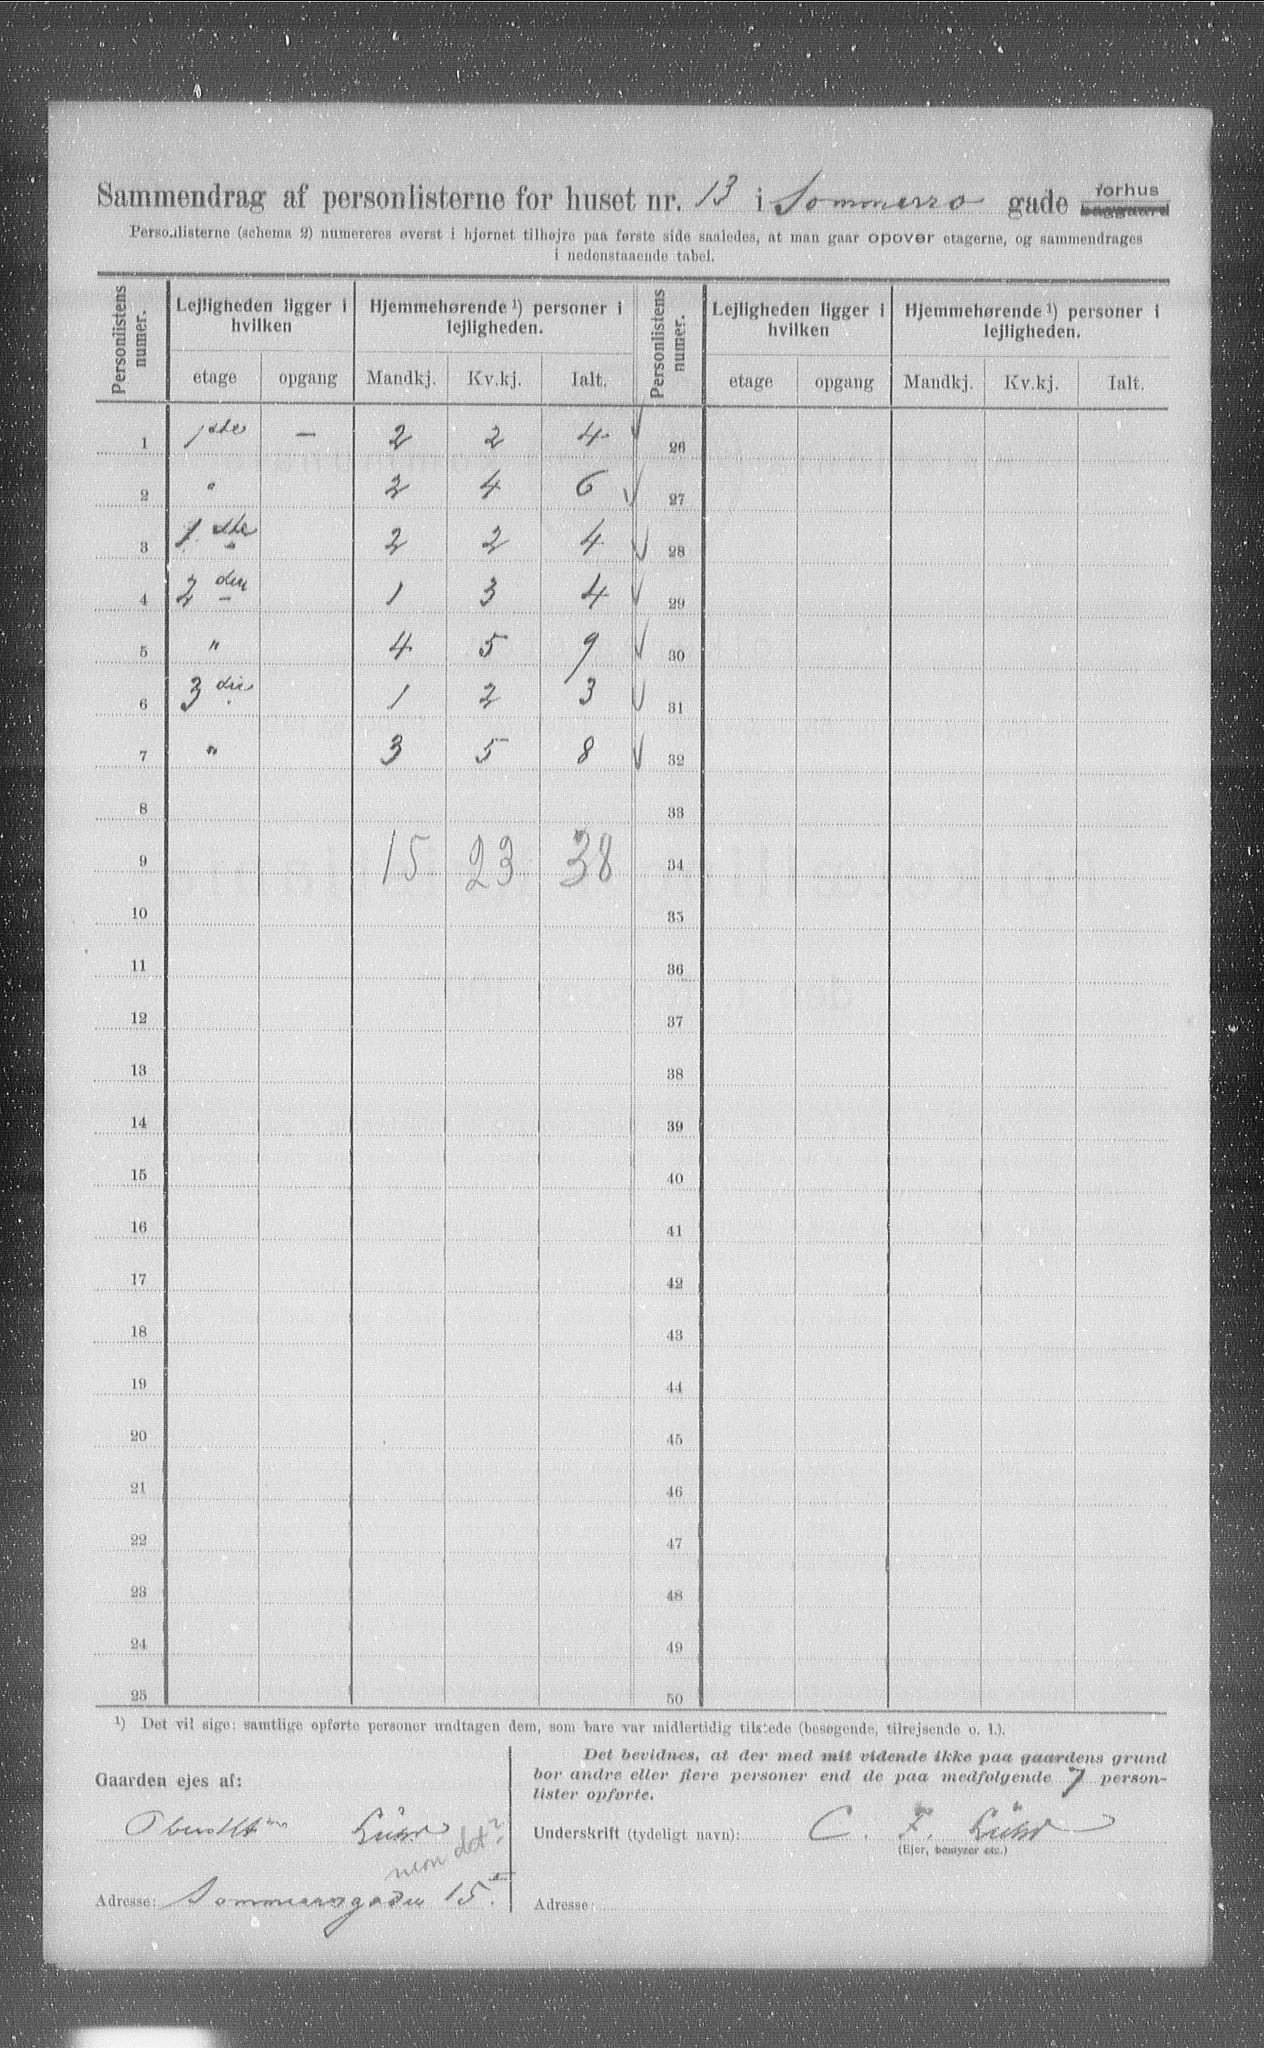 Sammendrag af personlisterne for huset nr. 13 i Sommerro gade forhus baggaard
Personlisterne (schema 2) numereres øverst i hjørnet tilhøjre paa første side saaledes, at man gaar opover etagerne, og sammendrages
i nedenstaaende tabel.
Personlistens numer. Lejligheden ligger i hvilken Hjemmehørende ¹) personer i lejligheden. Personlistens numer. Lejligheden ligger i hvilken Hjemmehørende ¹) personer i lejligheden.
etage opgang Mandkj. Kv.kj. Ialt. etage opgang Mandkj. Kv.kj. Ialt.
1 1ste — 2 2 4 ✓ 26
2 " 2 4 6 ✓ 27
3 1ste 2 2 4 ✓ 28
4 2den 1 3 4 ✓ 29
5 " 4 5 9 ✓ 30
6 3die 1 2 3 ✓ 31
7 " 3 5 8 ✓ 32
8 33
9 15 23 38 34
10 35
11 36
12 37
13 38
14 39
15 40
16 41
17 42
18 43
19 44
20 45
21 46
22 47
23 48
24 49
25 50
¹) Det vil sige: samtlige opførte personer undtagen dem, som bare var midlertidig tilstede (besøgende, tilrejsende o. l.).
Gaarden ejes af:
Adresse: Sommerrogaden 15
Det bevidnes, at der med mit vidende ikke paa gaardens grund
bor andre eller flere personer end de paa medfølgende 7 person-
lister opførte.
Underskrift (tydeligt navn): C. F.
(Ejer, bestyrer etc.)
Adresse: